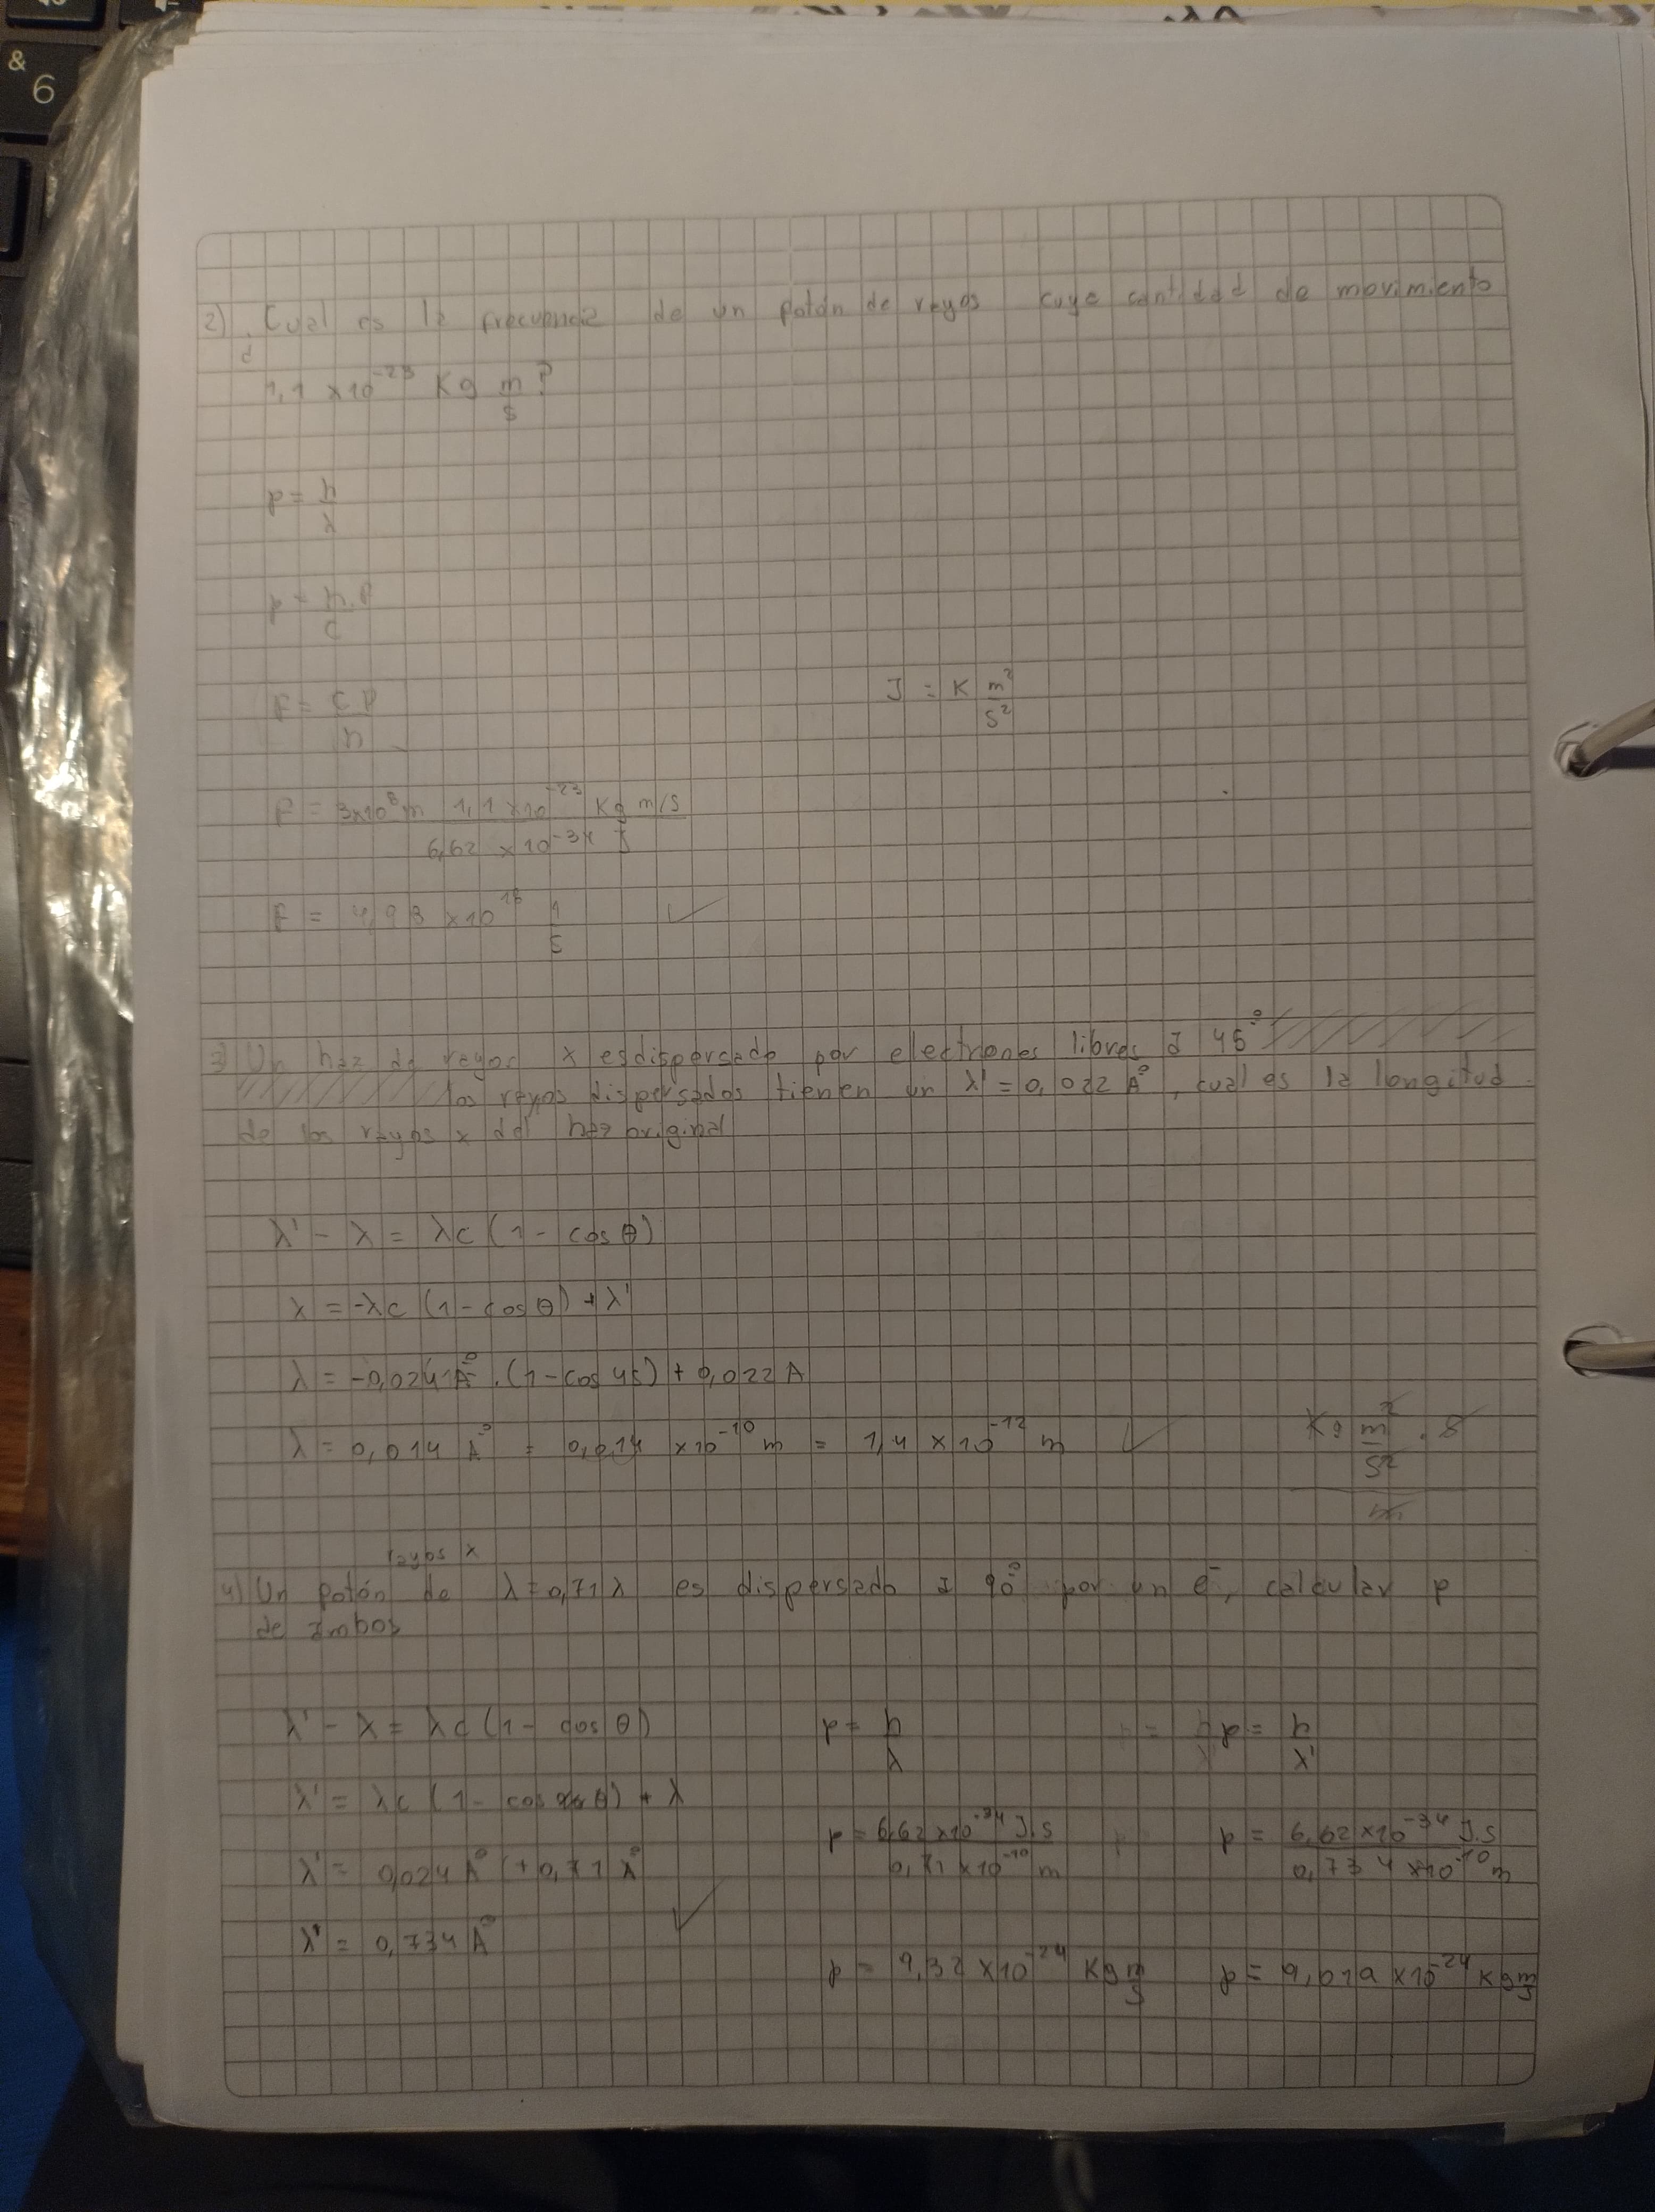 & 6
2) ¿Cual es la frecuencia de un fotón de rayos cuya cantidad de movimiento
1,1 x10^-23 Kg m/s ?
p = h/λ
p = h.f/c
f = c p/h
J = K m²/s²
f = 3x10^8 m 1,1 x10^-23 Kg m/s / 6,62 x10^-34 J
f = 4,98 x10^18 1/s ✓
3) Un haz de rayos x es dispersado por electrones libres a 45°
los rayos dispersados tienen un λ' = 0,022 Å, cual es la longitud
de los rayos x del haz original
λ' - λ = λc (1 - cos θ)
λ = -λc (1 - cos θ) + λ'
λ = -0,024 Å . (1 - cos 45) + 0,022 A
λ = 0,014 Å = 0,014 x10^-10 m = 1,4 x10^-12 m ✓
Kg m²/s² . s / m
rayos x
4) Un fotón de λ = 0,71 λ es dispersado a 90° por un e⁻, calcular p
de ambos
λ' - λ = λc (1 - cos θ)
p = h/λ
p = h/λ'
λ' = λc (1 - cos θ) + λ
p = 6,62 x10^-34 J.s / 0,71 x10^-10 m
p = 6,62 x10^-34 J.s / 0,734 x10^-10 m
λ' = 0,024 Å + 0,71 Å
λ' = 0,734 Å ✓
p = 9,32 x10^-24 Kg m/s
p = 9,019 x10^-24 Kg m/s